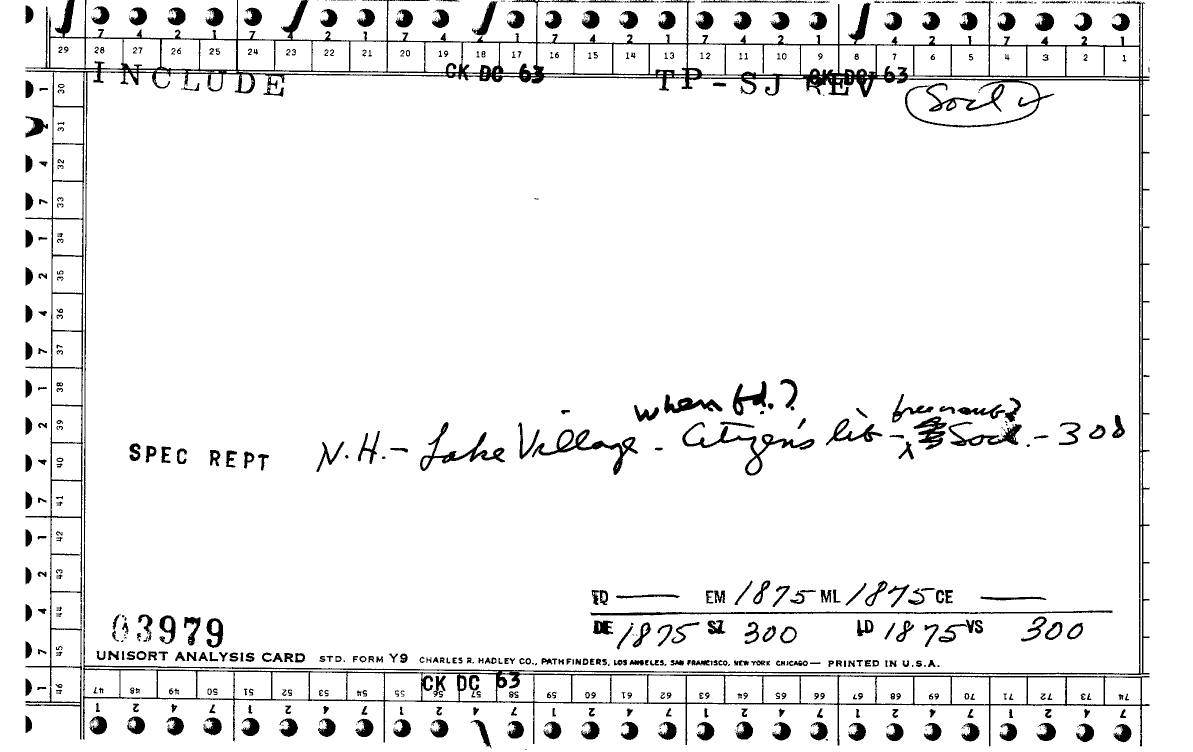 7 4 2 1 7 4 2 1 7 4 2 1 7 4 2 1 7 4 2 1 7 4 2 1 7 4 2 1
29 28 27 26 25 24 23 22 21 20 19 18 17 16 15 14 13 12 11 10 9 8 7 6 5 4 3 2 1
INCLUDE CK DC 63 TP-SJ REV CK DC 63
Socl ✓
30
31
32
33
34
35
36
37
38
39
40
41
42
43
44
45
46
when fd.?
SPEC REPT N.H. - Lake Village - Citizen's lib - Socl. - 300
FD — EM 1875 ML 1875 CE —
DE 1875 SZ 300 LD 1875 VS 300
03979
UNISORT ANALYSIS CARD STD. FORM Y9 CHARLES R. HADLEY CO., PATHFINDERS, LOS ANGELES, SAN FRANCISCO, NEW YORK CHICAGO — PRINTED IN U.S.A.
CK DC 63
47 48 49 50 51 52 53 54 55 56 57 58 59 60 61 62 63 64 65 66 67 68 69 70 71 72 73 74
1 2 4 7 1 2 4 7 1 2 4 7 1 2 4 7 1 2 4 7 1 2 4 7 1 2 4 7